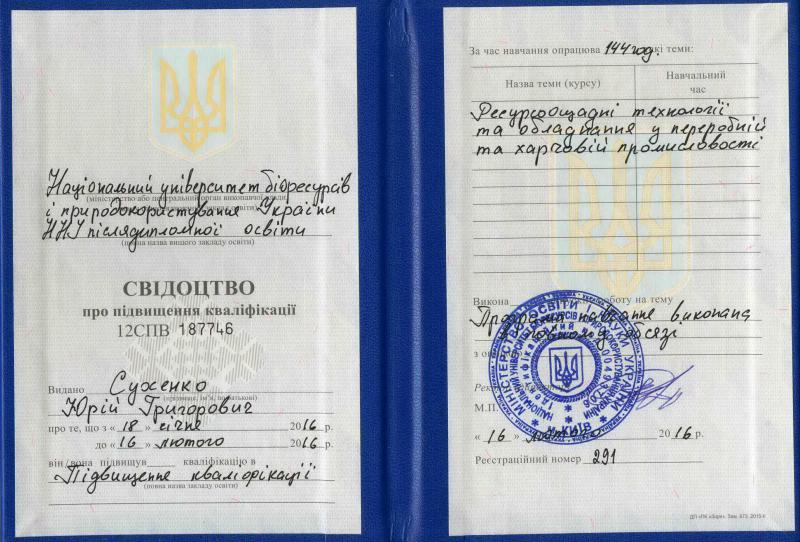 Національний університет біоресурсів
(міністерство або центральний орган виконавчої влади
і природокористування України
ННІ післядипломної освіти
(повна назва вищого закладу освіти)
СВІДОЦТВО
про підвищення кваліфікації
12СПВ 187746
Видано Сухенко
(прізвище, ім'я, по батькові)
Юрій Григорович
про те, що з « 18 » січня 2016 р.
до « 16 » лютого 2016 р.
він/вона підвищув кваліфікацію в
Підвищення кваліфікації
(повна назва закладу освіти)
За час навчання опрацюва 144 год. такі теми:
Назва теми (курсу)
Навчальний
час
Ресурсоощадні технології
та обладнання у переробній
та харчовій промисловості
Викона роботу на тему
Програма навчання виконана
в повному обсязі
з о
МІНІСТЕРСТВО ОСВІТИ І НАУКИ УКРАЇНИ
м. КИЇВ
М.П.
« 16 » лютого 2016 р.
Реєстраційний номер 291